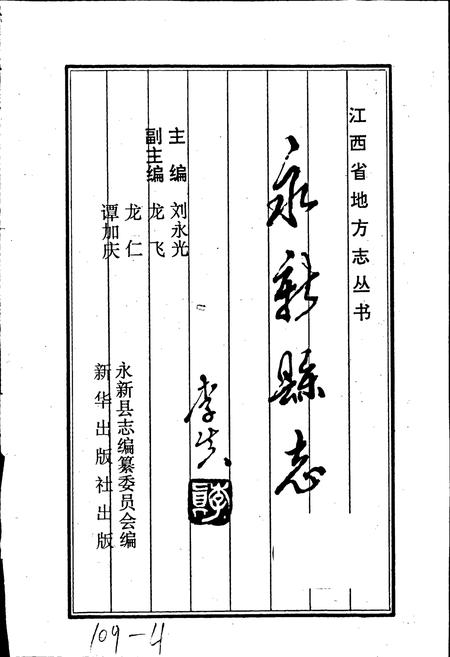 江西省地方志丛书
永新縣志
李真
李真
主编 刘永光
副主编 龙飞
龙仁
谭加庆
永新县志编纂委员会编
新华出版社出版
109-4